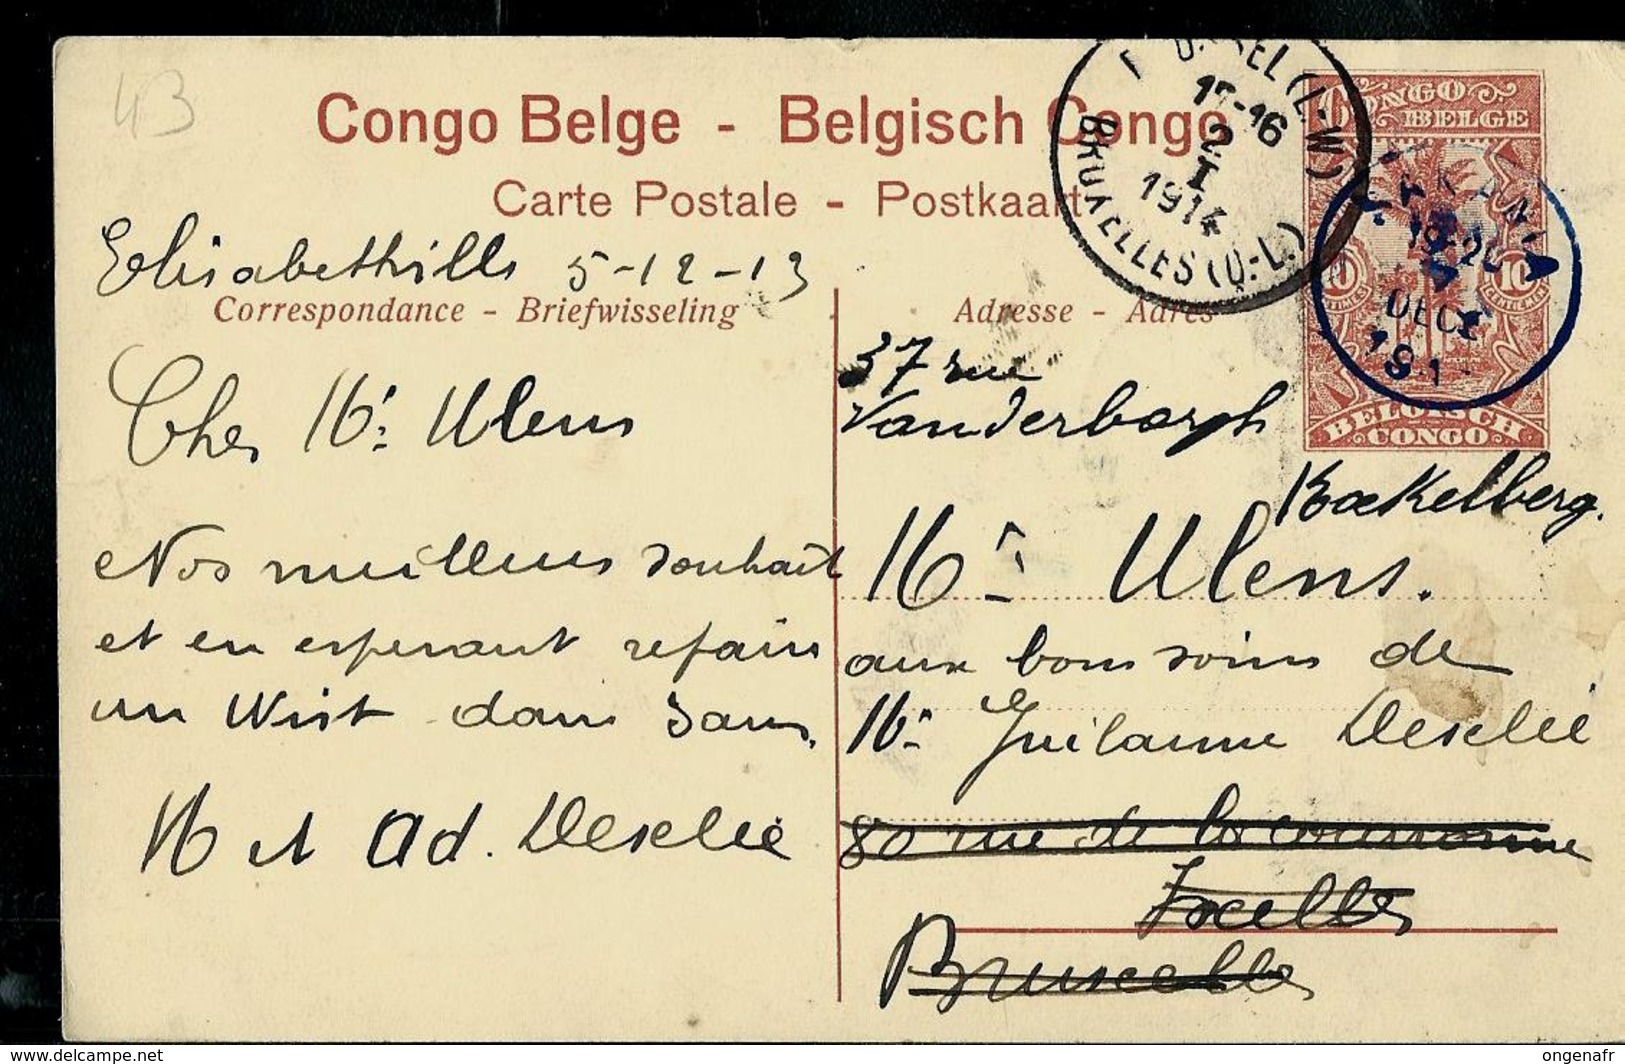 43
Congo Belge - Belgisch Congo
Carte Postale - Postkaart
CONGO BELGE
10 10
BELGISCH CONGO
BRUSSEL (L-W)
15-16
2
I
1914
BRUXELLES (Q.-L.)
KAKANIA
DEC
191
Elisabethvills 5-12-13
Correspondance - Briefwisseling
Adresse - Adres
Cher Mr Ulens
Nos meilleurs souhait
et en esperant refaire
un Wist dans 3 ans.
M et Ad. Desclée
37 rue
Vanderborgh
Koekelberg.
Mr Ulens.
aux bons soins de
Mr Guilaume Desclée
80 rue de la couronne
Ixelles
Bruxelles
www.delcampe.net
ongenafr